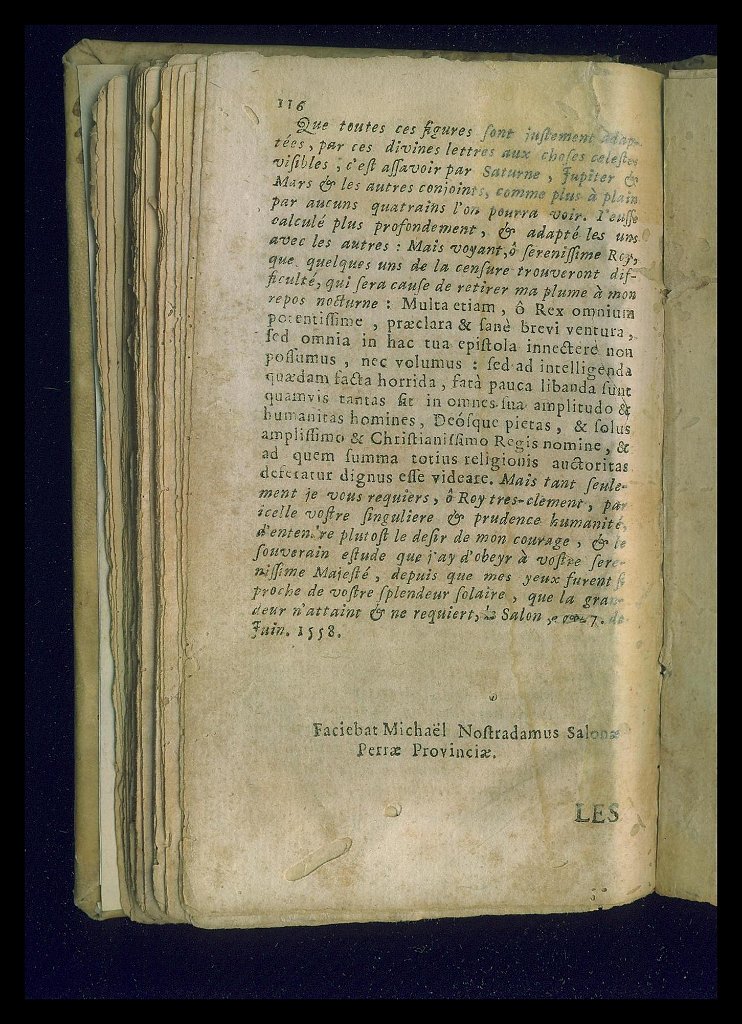 116
Que toutes ces figures ſont juſtement adap-
tées, par ces divines lettres aux choſes celeſtes
viſibles, c'eſt aſſavoir par Saturne, Jupiter &
Mars & les autres conjoints, comme plus à plain
par aucuns quatrains l'on pourra voir. I'euſſe
calculé plus profondement, & adapté les uns
avec les autres : Mais voyant, ô ſereniſſime Roy,
que quelques uns de la cenſure trouveront dif-
ficulté, qui ſera cauſe de retirer ma plume à mon
repos nocturne : Multa etiam, ô Rex omnium
potentiſſime, præclara & ſanè brevi ventura,
ſed omnia in hac tua epiſtola innectere non
poſſumus, nec volumus : ſed ad intelligenda
quædam facta horrida, fata pauca libanda ſunt
quamvis tantas ſit in omnes ſua amplitudo &
humanitas homines, Deóſque pietas, & ſolus
ampliſſimo & Chriſtianiſſimo Regis nomine, &
ad quem ſumma totius religionis auctoritas
deferatur dignus eſſe videare. Mais tant ſeule-
ment je vous requiers, ô Roy tres-clement, par
icelle voſtre ſinguliere & prudence humanité,
d'entendre plutoſt le deſir de mon courage, & le
ſouverain eſtude que j'ay d'obeyr à voſtre ſere-
niſſime Majeſté, depuis que mes yeux furent ſi
proche de voſtre ſplendeur ſolaire, que la gran-
deur n'attaint & ne requiert, Salon, 7. de
Juin. 1558.
Faciebat Michaël Noſtradamus Salonæ
Petræ Provinciæ.
LES